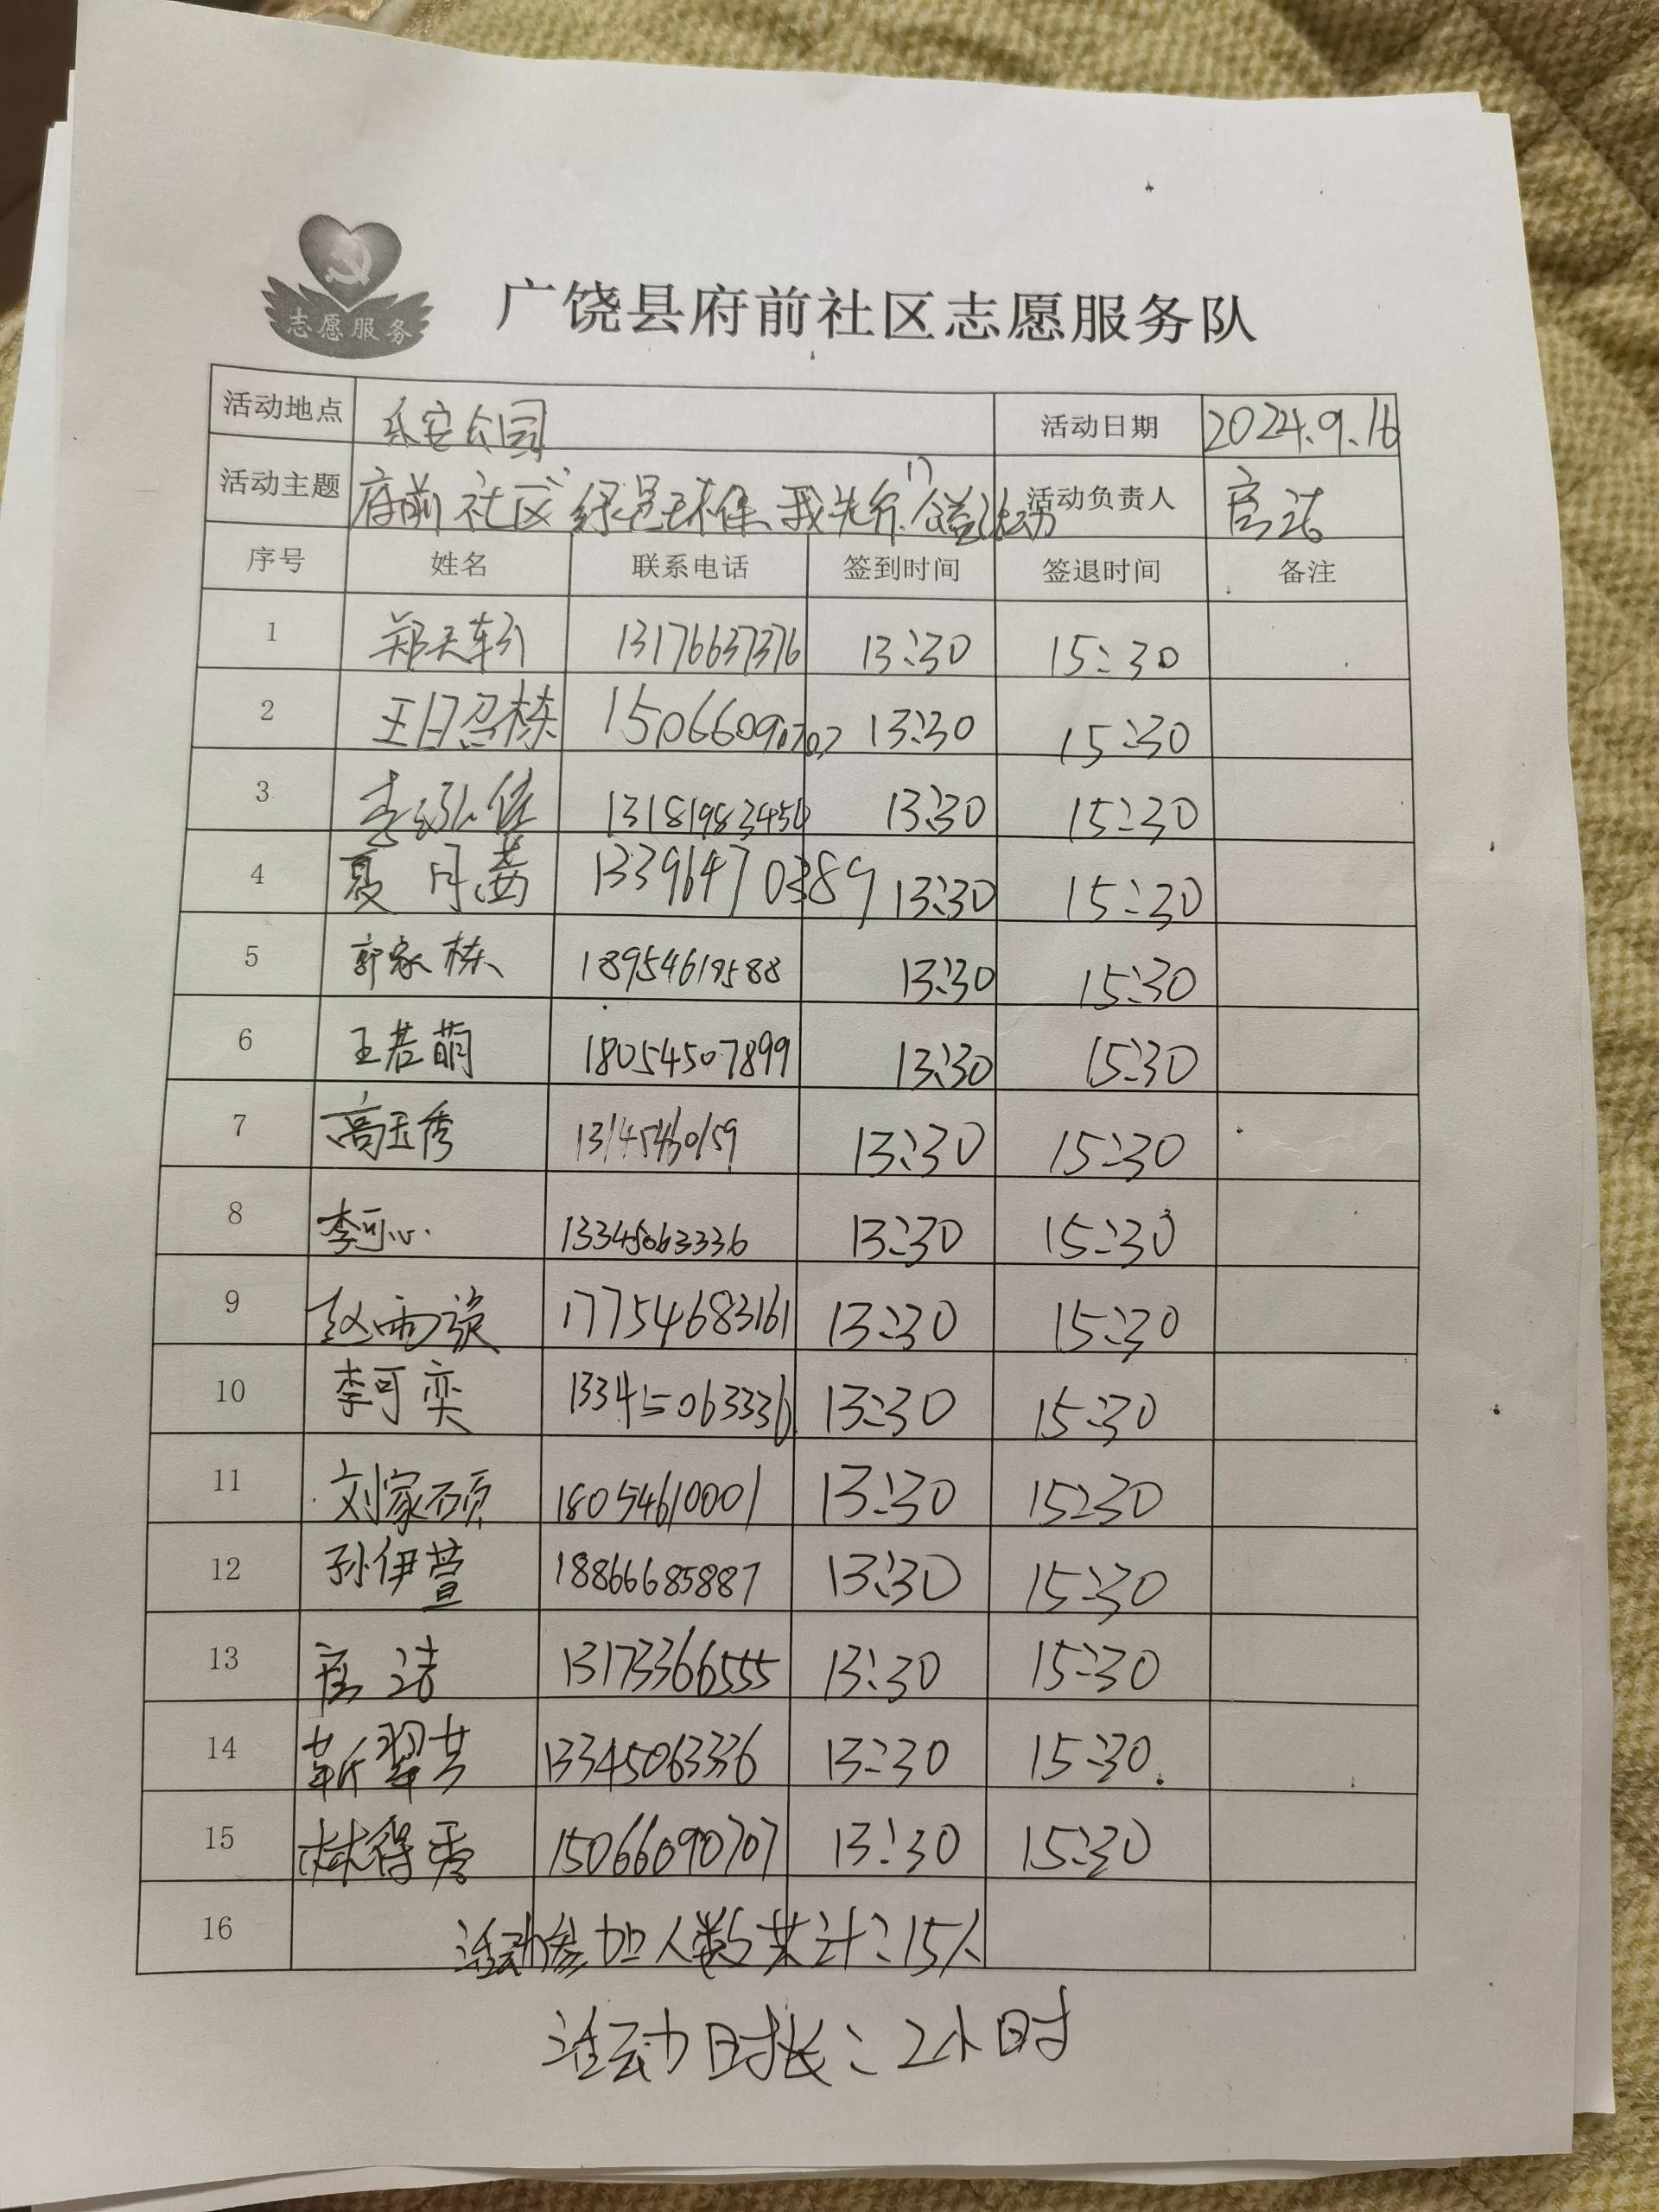 志愿服务
广饶县府前社区志愿服务队
活动地点 乐安公园 活动日期 2024.9.16
活动主题 府前社区“绿色环保、我先行”公益活动 活动负责人 洁
序号 姓名 联系电话 签到时间 签退时间 备注
1 郑天 13176637376 13:30 15:30
2 王昭栋 15066090707 13:30 15:30
3 李泓 13181983450 13:30 15:30
4 夏月茜 13396470389 13:30 15:30
5 郭家栋 18954619588 13:30 15:30
6 王若萌 18054507899 13:30 15:30
7 高玉秀 13:30 15:30
8 李可心 13345063336 13:30 15:30
9 赵雨 17754683161 13:30 15:30
10 李可奕 13345063336 13:30 15:30
11 刘家硕 18054610001 13:30 15:30
12 孙伊萱 18866685887 13:30 15:30
13 洁 13173366555 13:30 15:30
14 靳翠芳 13345063336 13:30 15:30
15 林得秀 15066090707 13:30 15:30
16 活动参加人数共计:15人
活动时长:2小时